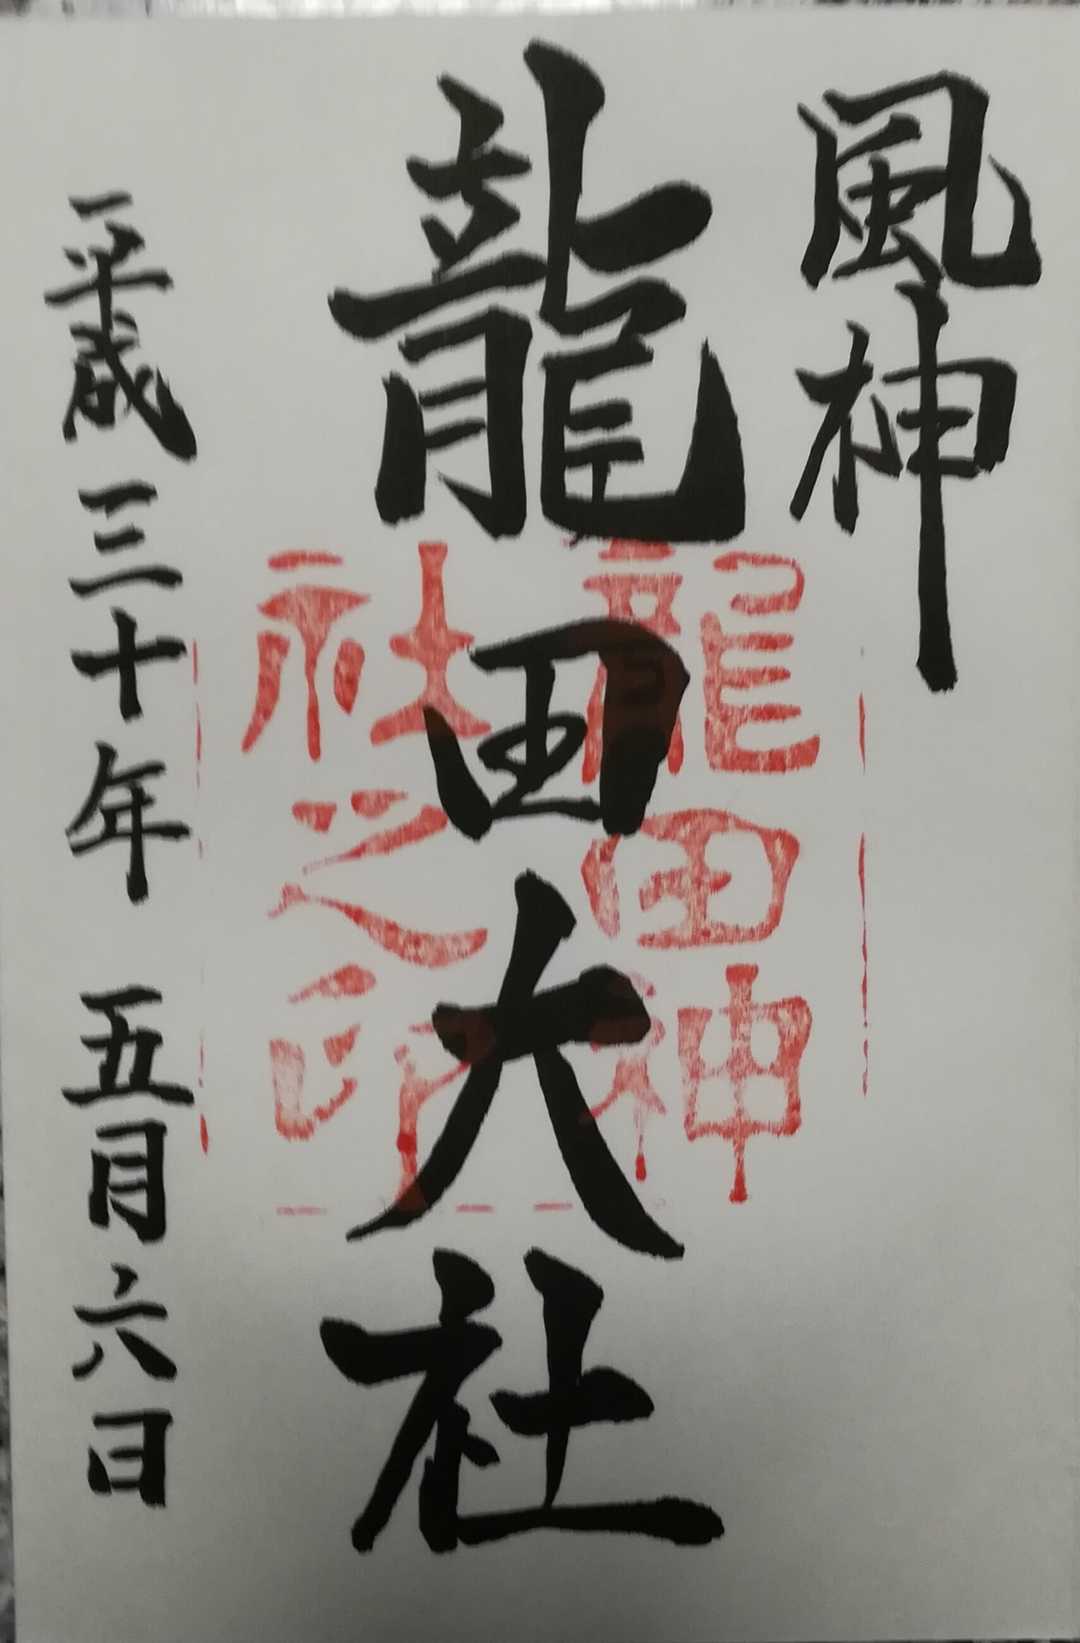 風神
龍田大社
龍田神
社之印
平成三十年 五月六日